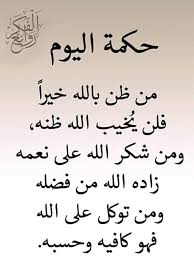 حكمة اليوم
من ظن بالله خيراً
فلن يُخيب الله ظنه،
ومن شكر الله على نعمه
زاده الله من فضله
ومن توكل على الله
فهو كافيه وحسبه.